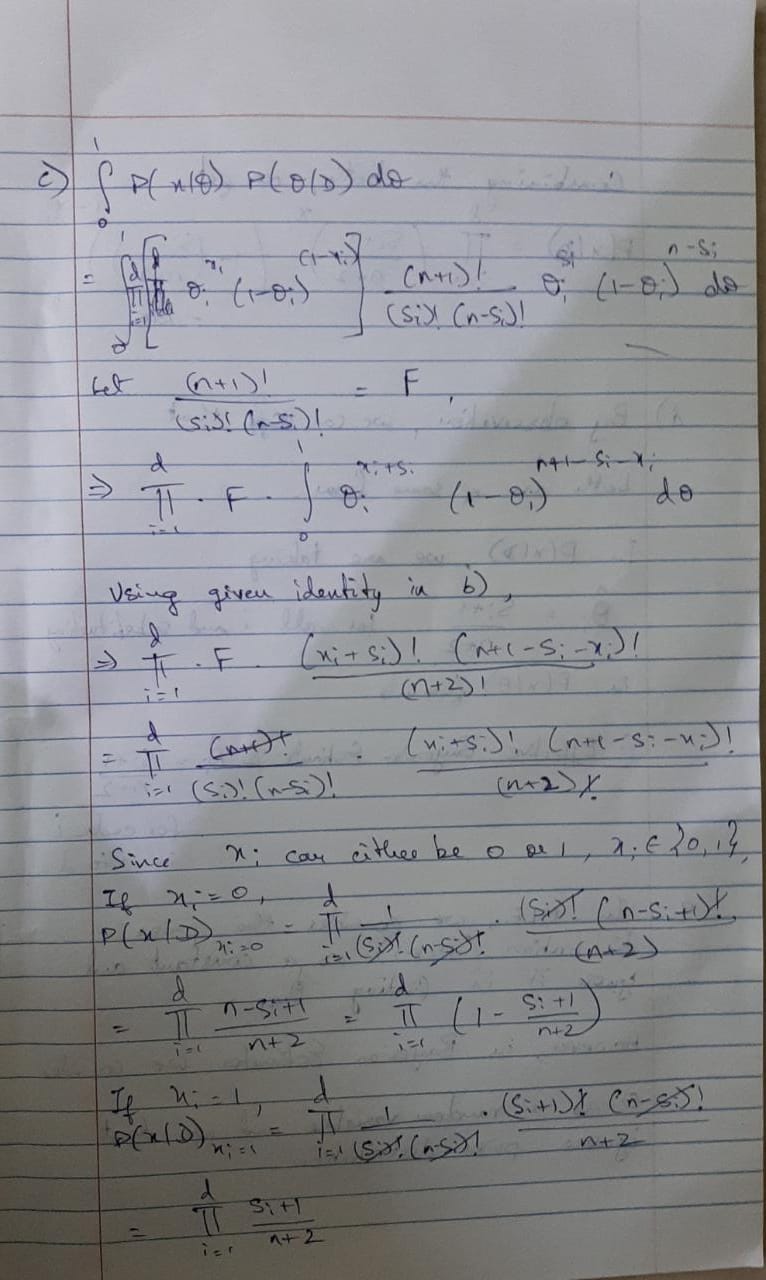 c) ∫₀¹ P(x|θ) P(θ|D) dθ
= ∫₀¹ ∏ᵢ₌₁ᵈ [ θᵢ^xᵢ (1-θᵢ)^(1-xᵢ) ] (n+1)! / (sᵢ)! (n-sᵢ)! θᵢ^sᵢ (1-θᵢ)^n-sᵢ dθ
Let (n+1)! / (sᵢ)! (n-sᵢ)! = F,
⇒ ∏ᵢ₌₁ᵈ · F · ∫₀¹ θᵢ^xᵢ+sᵢ (1-θᵢ)^n+1-sᵢ-xᵢ dθ
Using given identity in b),
⇒ ∏ᵢ₌₁ᵈ · F · (xᵢ+sᵢ)! (n+1-sᵢ-xᵢ)! / (n+2)!
= ∏ᵢ₌₁ᵈ (n+1)! / (sᵢ)! (n-sᵢ)! · (xᵢ+sᵢ)! (n+1-sᵢ-xᵢ)! / (n+2)!
Since xᵢ can either be 0 or 1, xᵢ ∈ {0,1},
If xᵢ = 0,
P(x|D)ₓᵢ₌₀ = ∏ᵢ₌₁ᵈ 1 / (sᵢ)! (n-sᵢ)! · (sᵢ)! (n-sᵢ+1)! / (n+2)
= ∏ᵢ₌₁ᵈ n-sᵢ+1 / n+2 = ∏ᵢ₌₁ᵈ (1 - sᵢ+1 / n+2)
If xᵢ = 1,
P(x|D)ₓᵢ₌₁ = ∏ᵢ₌₁ᵈ 1 / (sᵢ)! (n-sᵢ)! · (sᵢ+1)! (n-sᵢ)! / n+2
= ∏ᵢ₌₁ᵈ sᵢ+1 / n+2